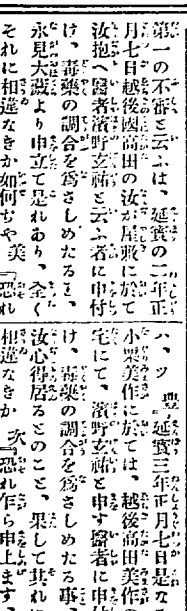 第一の不審と云ふは、延寶の二年正
月七日越後國高田の汝が屋敷に於て
汝抱へ醫者濱野玄祐と云ふ者に申付
け、毒藥の調合を爲さしめたると、
永見大藏より申立て是れあり、全く
それに相違なきか如何ぢや 美『恐れ
ハ、ツ 豐『延寶三年正月七日是な
小栗美作に於ては、越後高田美作の
宅にて、濱野玄祐と申す醫者に申付
け、毒藥の調合を爲さしめたる事、
汝心得居るとのこと、果して其れに
相違なきか 次『恐れ乍ら申上ます、